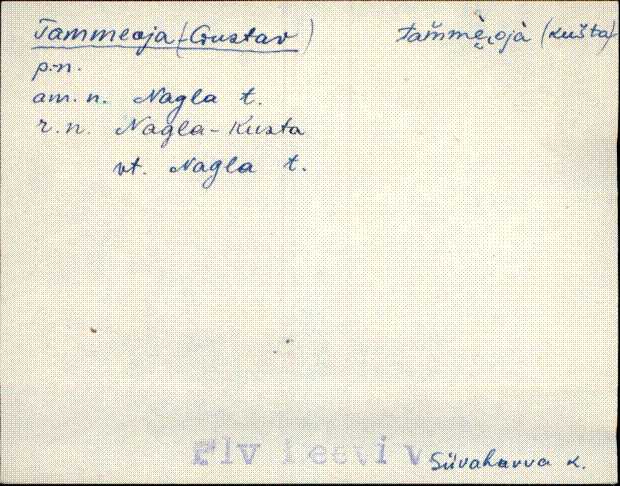 Tammeoja (Gustav) tam̀mè̮i̯ojà (kušta)
p.n.
am. n. Nagla t.
r. n. Nagla-Kusta
vt. Nagla t.
Plv Leevi v Süvahavva k.